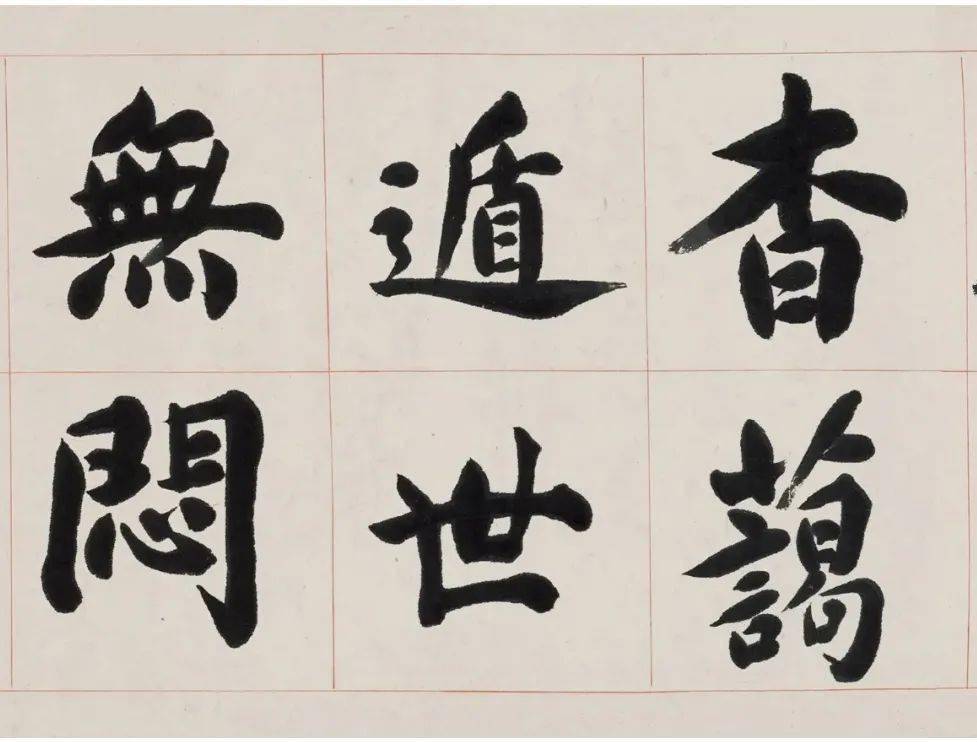 杳藹
遁世
無悶